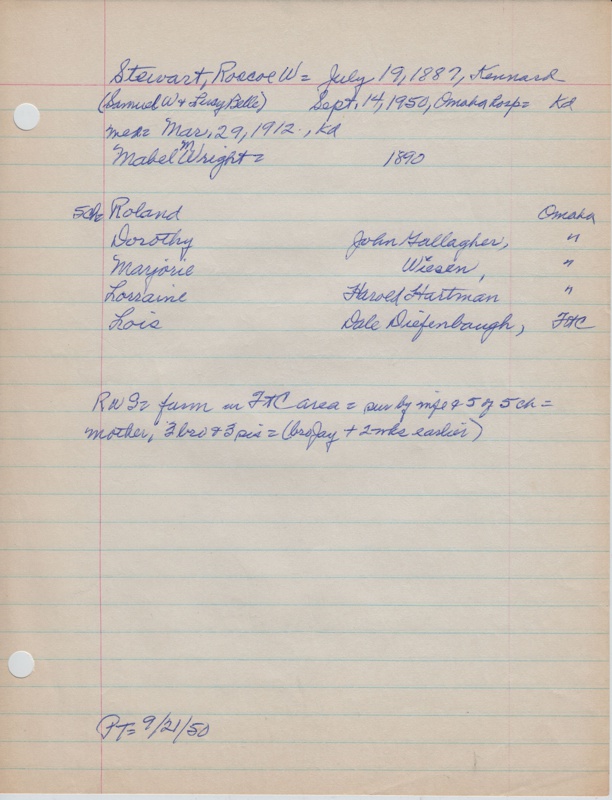 Stewart, Roscoe W = July 19, 1887, Kennard
(Samuel W + Belle) Sept. 14, 1950, Omaha hosp = Kd
med = Mar. 29, 1912., Kd
Mabel M Wright = 1890
5ch = Roland Omaha
Dorothy John Gallagher, "
Marjorie Wiesen, "
Lorraine Harold Hartman "
Lois Dale Diefenbaugh, FtC
farm in FtC area = sur by wife & 5 of 5 ch =
mother, 3 bro & 3 sis = (bro Jay + 2 wks earlier)
PT = 9/21/50